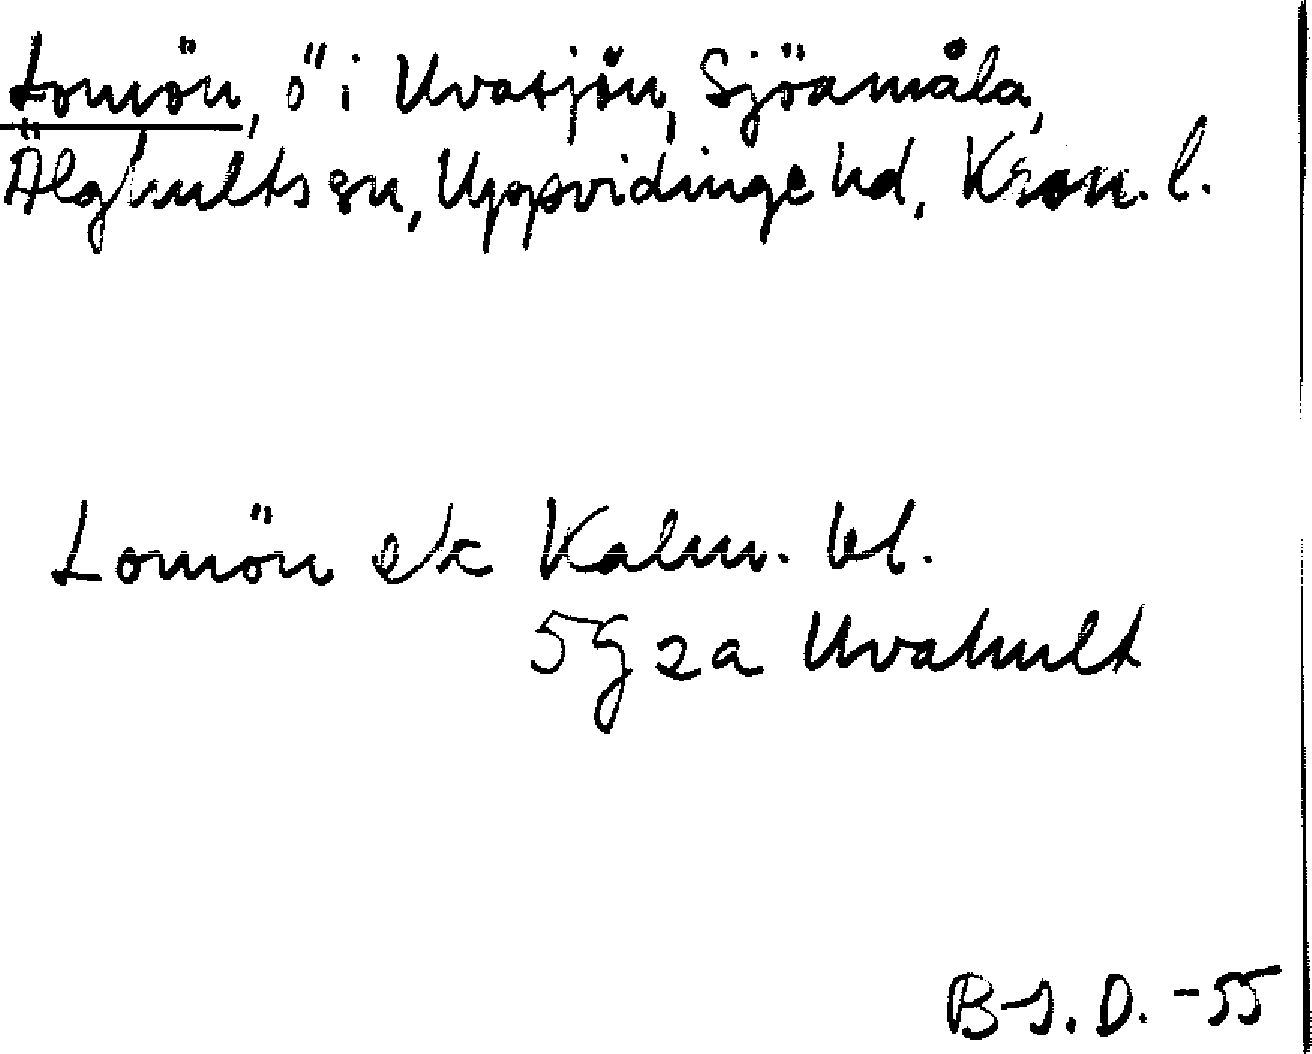 Lomön, ö i Uvasjön, Sjöamåla,
Älghults sn, Uppvidinge hd, Kron. l.
Lomön ek Kalm. bl.
5g 2a Uvahult
B-J. D. -55